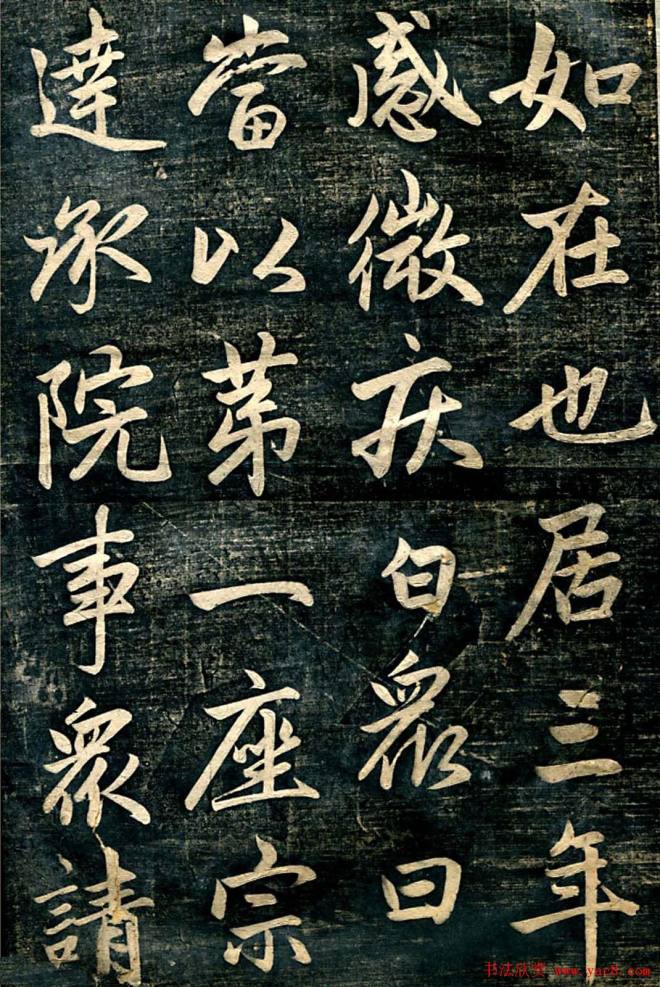 如在也居三年
感微疾白眾曰
當以苐一座宗
達承院事眾請
书法欣赏 www.yac8.com